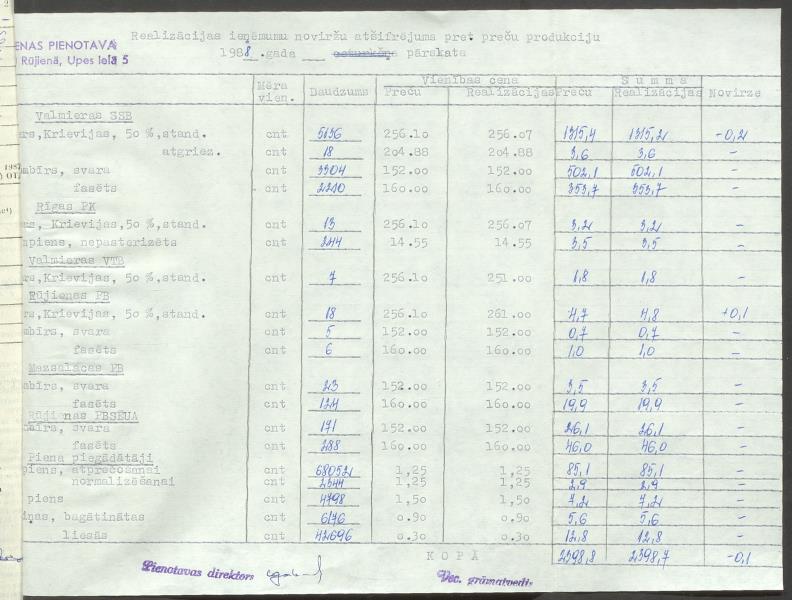 Realizācijas ieņēmumu noviržu atšifrējums pret preču produkciju
ENAS PIENOTAVA
Rūjienā, Upes ielā 5
1988.gada ceturkšņa pārskata
Mēra vien. Daudzums Vienības cena Summa
Preču Realizācijas Preču Realizācijas Novirze
Valmieras SSB
rs,Krievijas, 50 %,stand. cnt 5136 256.10 256.07 1315,4 1315,2 -0,2
atgriez. cnt 18 204.88 204.88 3,6 3,6 -
abīrs, svara cnt 3304 152.00 152.00 502,1 502,1 -
fasēts cnt 2210 160.00 160.00 353,7 353,7 -
Rīgas PK
rs, Krievijas,50 %,stand. cnt 13 256.10 256.07 3,2 3,2 -
npiens, nepasterizēts cnt 244 14.55 14.55 3,5 3,5 -
Valmieras VTB
rs,Krievijas,50 %,stand. cnt 7 256.10 251.00 1,8 1,8 -
Rūjienas PB
rs,Krievijas,50 %,stand. cnt 18 256.10 261.00 4,7 4,8 +0,1
abīrs, svara cnt 5 152.00 152.00 0,7 0,7 -
fasēts cnt 6 160.00 160.00 1,0 1,0 -
Mazsalacas PB
abīrs, svara cnt 23 152.00 152.00 3,5 3,5 -
fasēts cnt 124 160.00 160.00 19,9 19,9 -
Rūjienas PBSEUA
abīrs, svara cnt 171 152.00 152.00 26,1 26,1 -
fasēts cnt 288 160.00 160.00 46,0 46,0 -
Piena piegādātāji
piens, atprečošanai cnt 68052 1,25 1,25 85,1 85,1 -
normalizēšanai cnt 2344 1,25 1,25 2,9 2,9 -
piens cnt 4798 1,50 1,50 7,2 7,2 -
inas, bagātinātas cnt 6176 0.90 0.90 5,6 5,6 -
liesās cnt 42696 0.30 0.30 12,8 12,8 -
KOPĀ 2398,8 2398,7 -0,1
Pienotavas direktors
Vec. grāmatvedis